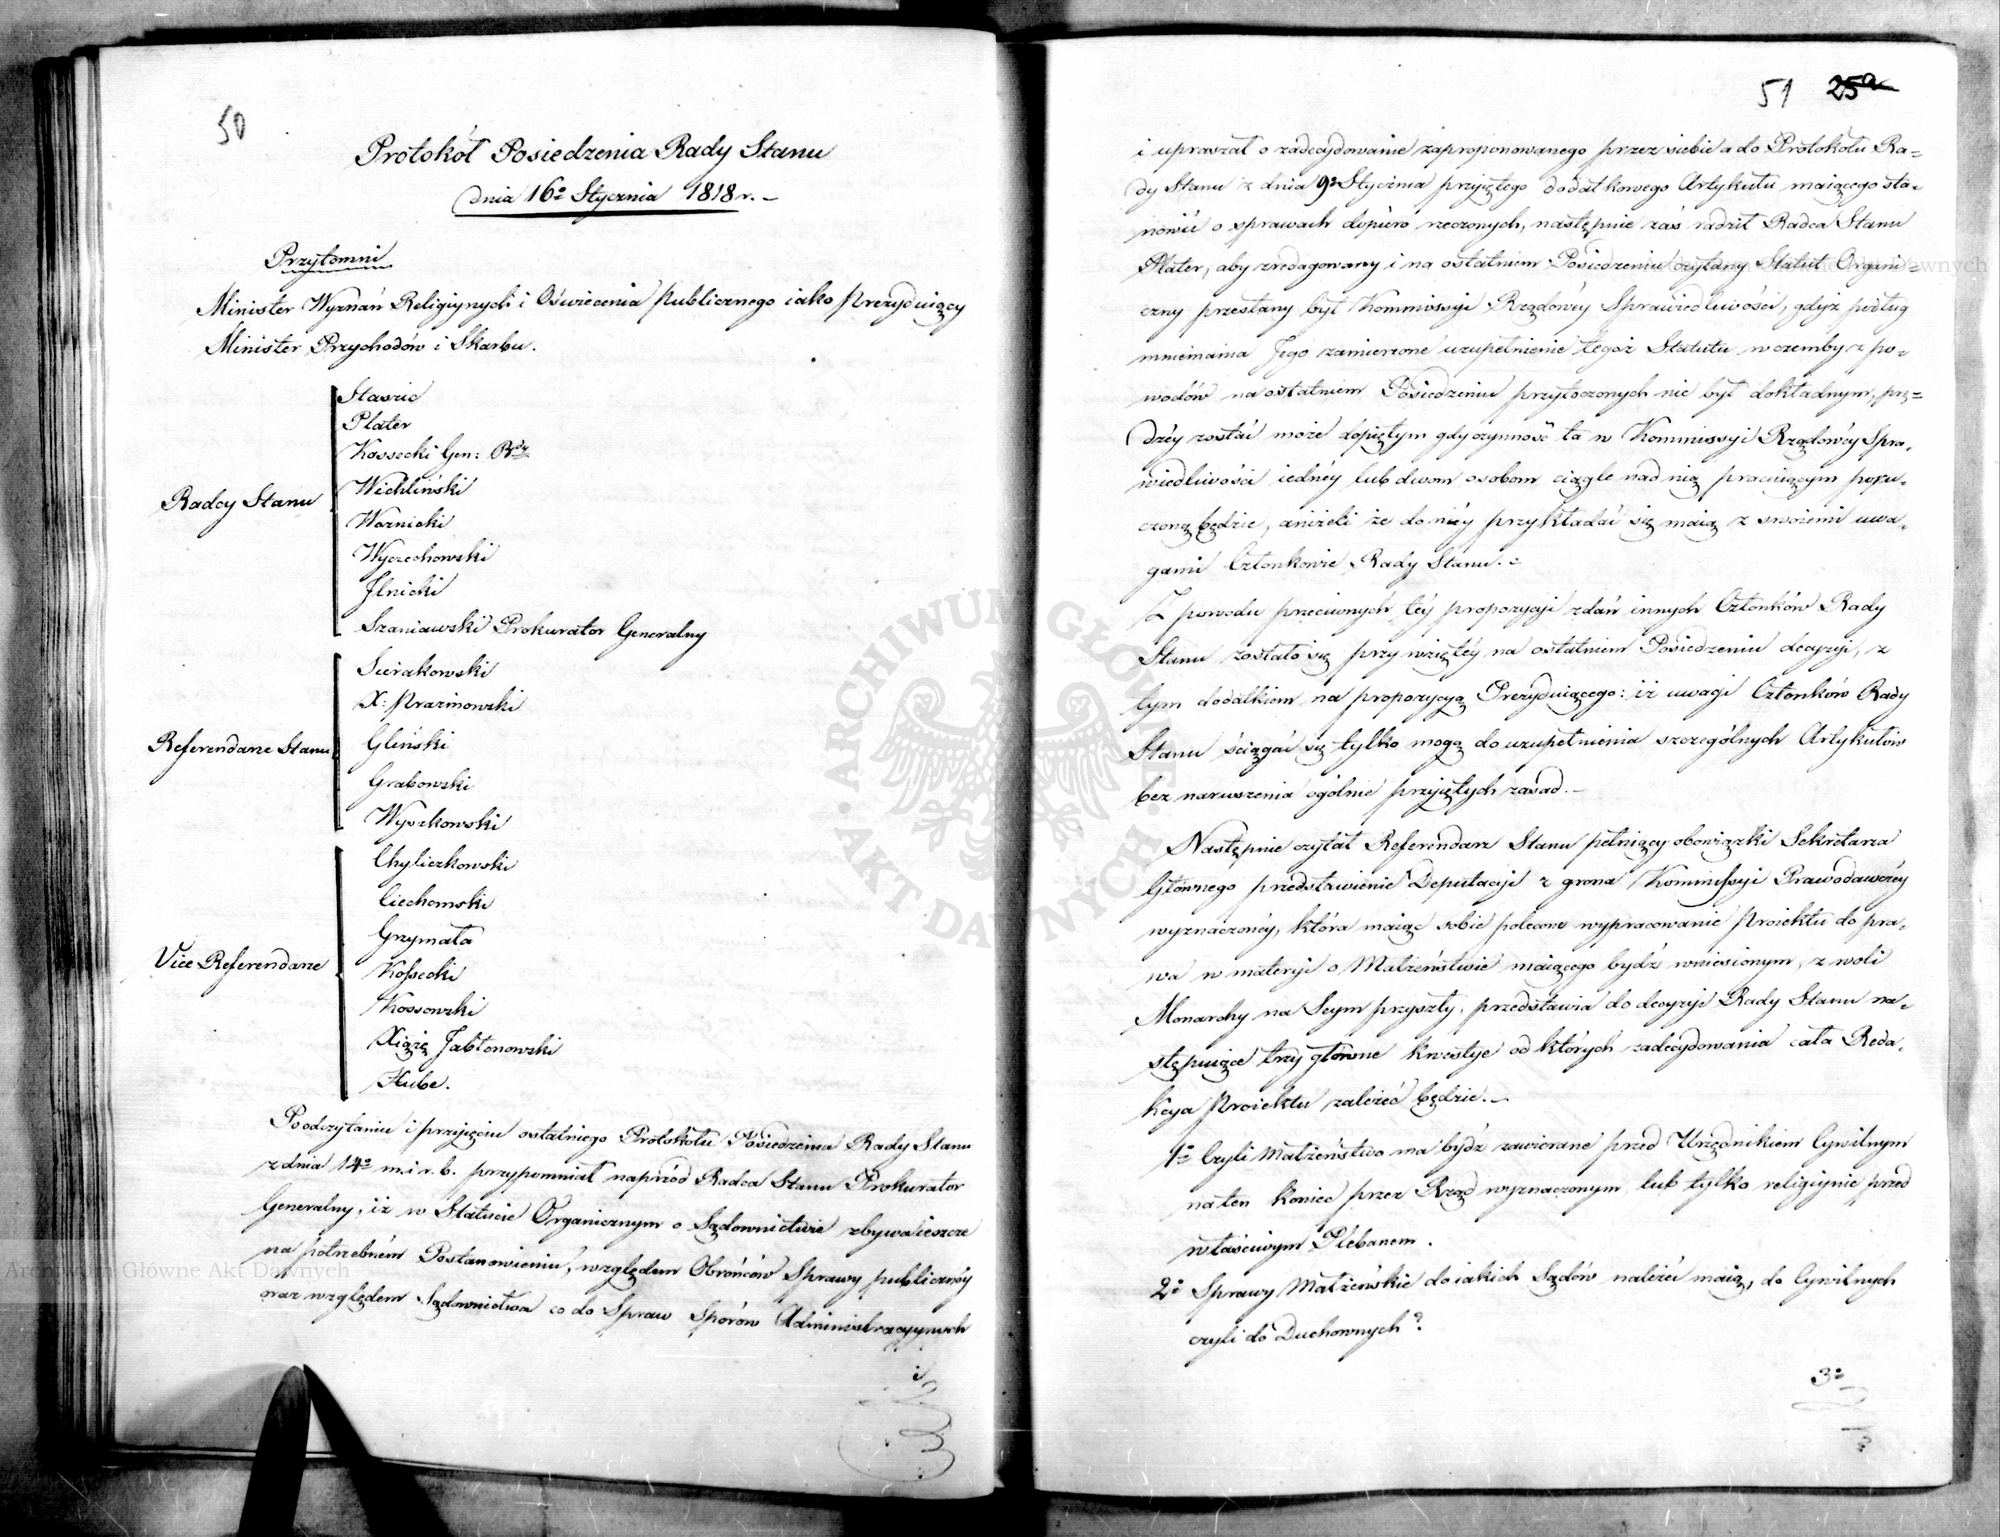 50
Protokół Posiedzenia Rady Stanu
dnia 16º Stycznia 1818 r. –
Przytomni
Minister Wyznań Religiynych i Oświecenia publicznego iako Prezyduiący
Minister Przychodów i Skarbu.
Radcy Stanu
Staszic
Plater
Kossecki Gen: Bdy
Wichliński
Woznicki
Wyczechowski
Ilnicki
Szaniawski Prokurator Generalny
Referendarze Stanu
Sierakowski
X: Prazmowski
Gliński
Grabowski
Wyszkowski
Vice Referendarze
Chyliczkowski
Ciechomski
Grzymała
Kossecki
Kossowski
Xiążę Jabłonowski
Hube.
Po odczytaniu i przyięciu ostatniego Protokółu Posiedzenia Rady Stanu
z dnia 14º m. i r. b. przypomniał naprzód Radca Stanu Prokurator
Generalny, iż w Statucie Organicznym o Sądownictwie zbywa ieszcze
na potrzebném Postanowieniu, względem Obrońców Sprawy publicznéy
oraz względem Sądownictwa co do Spraw Sporów Administracyynych
i
51 25a
i upraszał o zadecydowanie zaproponowanego przez siebie a do Protokółu Ra=
dy Stanu z dnia 9º Stycznia przyiętego dodatkowego Artykułu maiącego sta=
nowić o sprawach dopiéro rzeczonych, następnie zaś radził Radca Stanu
Plater, aby zredagowany i na ostatniem Posiedzeniu czytany Statut Organi=
czny przesłany był Kommissyi Rządowéy Sprawiedliwości, gdyż podług
mniemania Jego zamierzone uzupełnienie tegoż Statutu, w czemby z po=
wodów na ostatniem Posiedzeniu przytoczonych nie był dokładnym, prę=
dzéy zostać może dopiętym gdy czynność ta w Kommissyi Rządowéy Spra=
wiedliwości iednéy lub dwom osobom ciągle nad nią pracuiącym poru=
czoną będzie, aniżeli że do niéy przykładać się maią z swoiemi uwa=
gami Członkowie Rady Stanu. =
Z powodu przeciwnych téy propozycyi zdań innych Członków Rady
Stanu zostało się przy wziętéy na ostatniem Posiedzeniu decyzyi, z
tym dodatkiem na propozycyą Prezyduiącego: iż uwagi Członków Rady
Stanu ściągać się tylko mogą do uzupełnienia szczególnych Artykułów
bez naruszenia ogólnie przyiętych zasad. –
Następnie czytał Referendarz Stanu pełniący obowiązki Sekretarza
Głównego przedstawienie Deputacyi z grona Kommissyi Prawodawczéy
wyznaczonéy, która maiąc sobie polecone wypracowanie Proiektu do pra=
wa w materyi o Małżeństwie maiącego bydź wniesionym, z woli
Monarchy na Seym przyszły, przedstawia do decyzyi Rady Stanu na=
stępuiące trzy główne kwestye od których zadecydowania cała Reda=
kcya Proiektu zależeć będzie. –
1º Czyli Małżeństwo ma bydź zawierane przed Urzędnikiem Cywilnym
na ten koniec przez Rząd wyznaczonym, lub tylko religiynie przed
właściwym Plebanem.
2º Sprawy Małżeńskie do iakich Sądów należeć maią, do Cywilnych
czyli do Duchownych?
3º
ARCHIWUM GŁÓWNE AKT DAWNYCH
Archiwum Główne Akt Dawnych